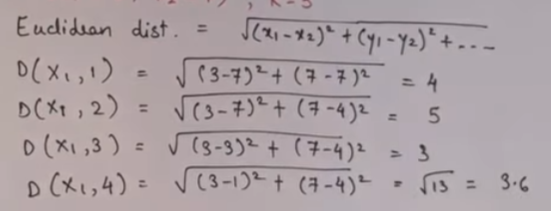 Euclidean dist. = √(x₁-x₂)² + (y₁-y₂)² + ---
D(x₁,1) = √(3-7)² + (7-7)² = 4
D(x₁,2) = √(3-7)² + (7-4)² = 5
D(x₁,3) = √(3-3)² + (7-4)² = 3
D(x₁,4) = √(3-1)² + (7-4)² = √13 = 3.6